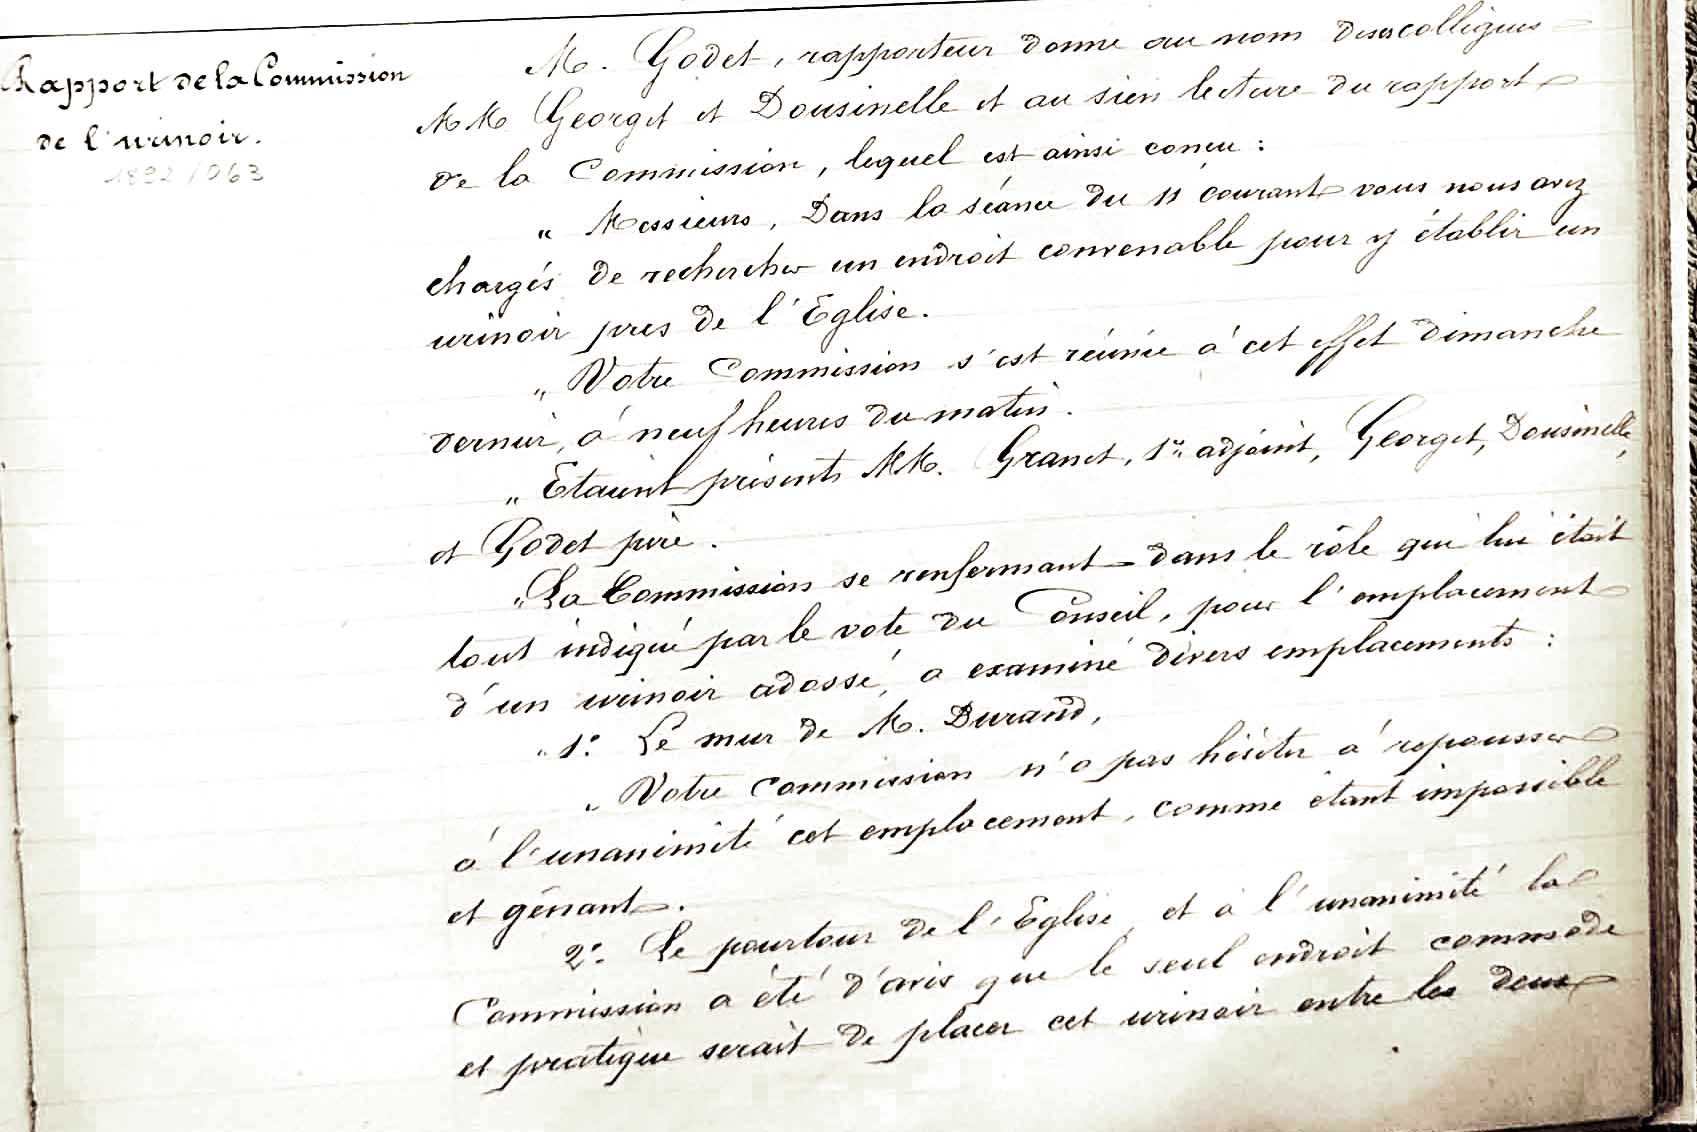 Rapport de la Commission
de l'urinoir.
1892/063
M. Godet, rapporteur donne au nom de ses collègues
MM Georget et Dousinelle et au sien lecture du rapport
de la Commission, lequel est ainsi conçu :
" Messieurs, Dans la séance du 11 courant vous nous avez
chargés de rechercher un endroit convenable pour y établir un
urinoir près de l'Eglise.
" Votre Commission s'est réunie à cet effet dimanche
dernier, à neuf heures du matin.
" Etaient présents MM. Granet, 1er adjoint, Georget, Dousinelle,
et Godet père.
" La Commission se renfermant dans le rôle qui lui était
tout indiqué par le vote du Conseil, pour l'emplacement
d'un urinoir adossé, a examiné divers emplacements :
" 1° Le mur de M. Durand,
" Votre commission n'a pas hésiter à repousser
à l'unanimité cet emplacement, comme étant impossible
et gênant.
2° Le pourtour de l'Eglise, et à l'unanimité la
Commission a été d'avis que le seul endroit commode
et pratique serait de placer cet urinoir entre les deux